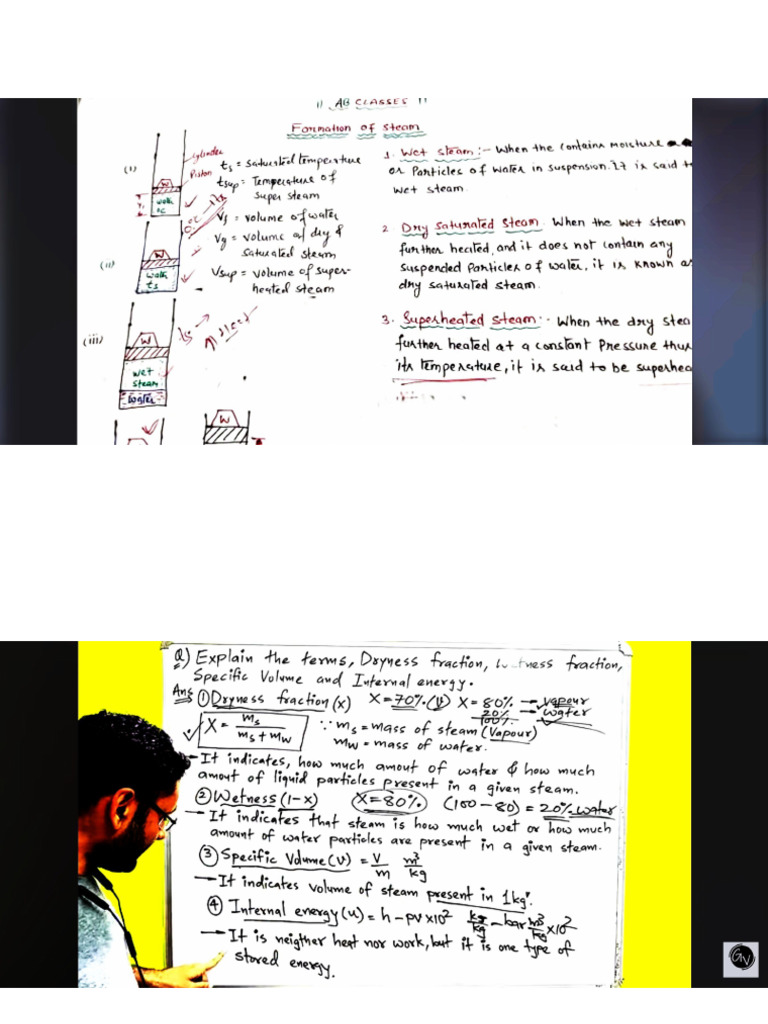 || AB CLASSES ||
Formation of steam
(i)
W
water
0°C
Cylinder
Piston
ts = saturated temperature
tsup = Temperature of
super steam
Vf = volume of water
Vg = volume of dry &
saturated steam
Vsup = volume of super-
heated steam
(ii)
W
ts
(iii)
W
wet
steam
water
ts
W
1. Wet steam :- When the contains moisture
or Particles of water in suspension. It is said t
wet steam.
2. Dry saturated steam. When the wet steam
further heated, and it does not contain any
suspended particles of water, it is known as
dry saturated steam.
3. Superheated steam :- When the dry stea
further heated at a constant pressure thus
its temperature, it is said to be superhea
Q) Explain the terms, Dryness fraction, tness fraction,
Specific Volume and Internal energy.
Ans ① Dryness fraction (x) X = 70% (v) X = 80% → vapour
20% → water
100%
X = ms / ms + mw ∵ ms = mass of steam (Vapour)
mw = mass of water.
→ It indicates, how much amout of water & how much
amout of liquid particles present in a given steam.
② Wetness (1-x) X = 80% (100 - 80) = 20% water
→ It indicates that steam is how much wet or how much
amount of water particles are present in a given steam.
③ Specific Volume (v) = V/m m³/kg
→ It indicates volume of steam present in 1kg.
④ Internal energy (u) = h - pv × 10² - bar m³/kg × 10²
→ It is neigther heat nor work, but it is one type of
stored energy.
GV